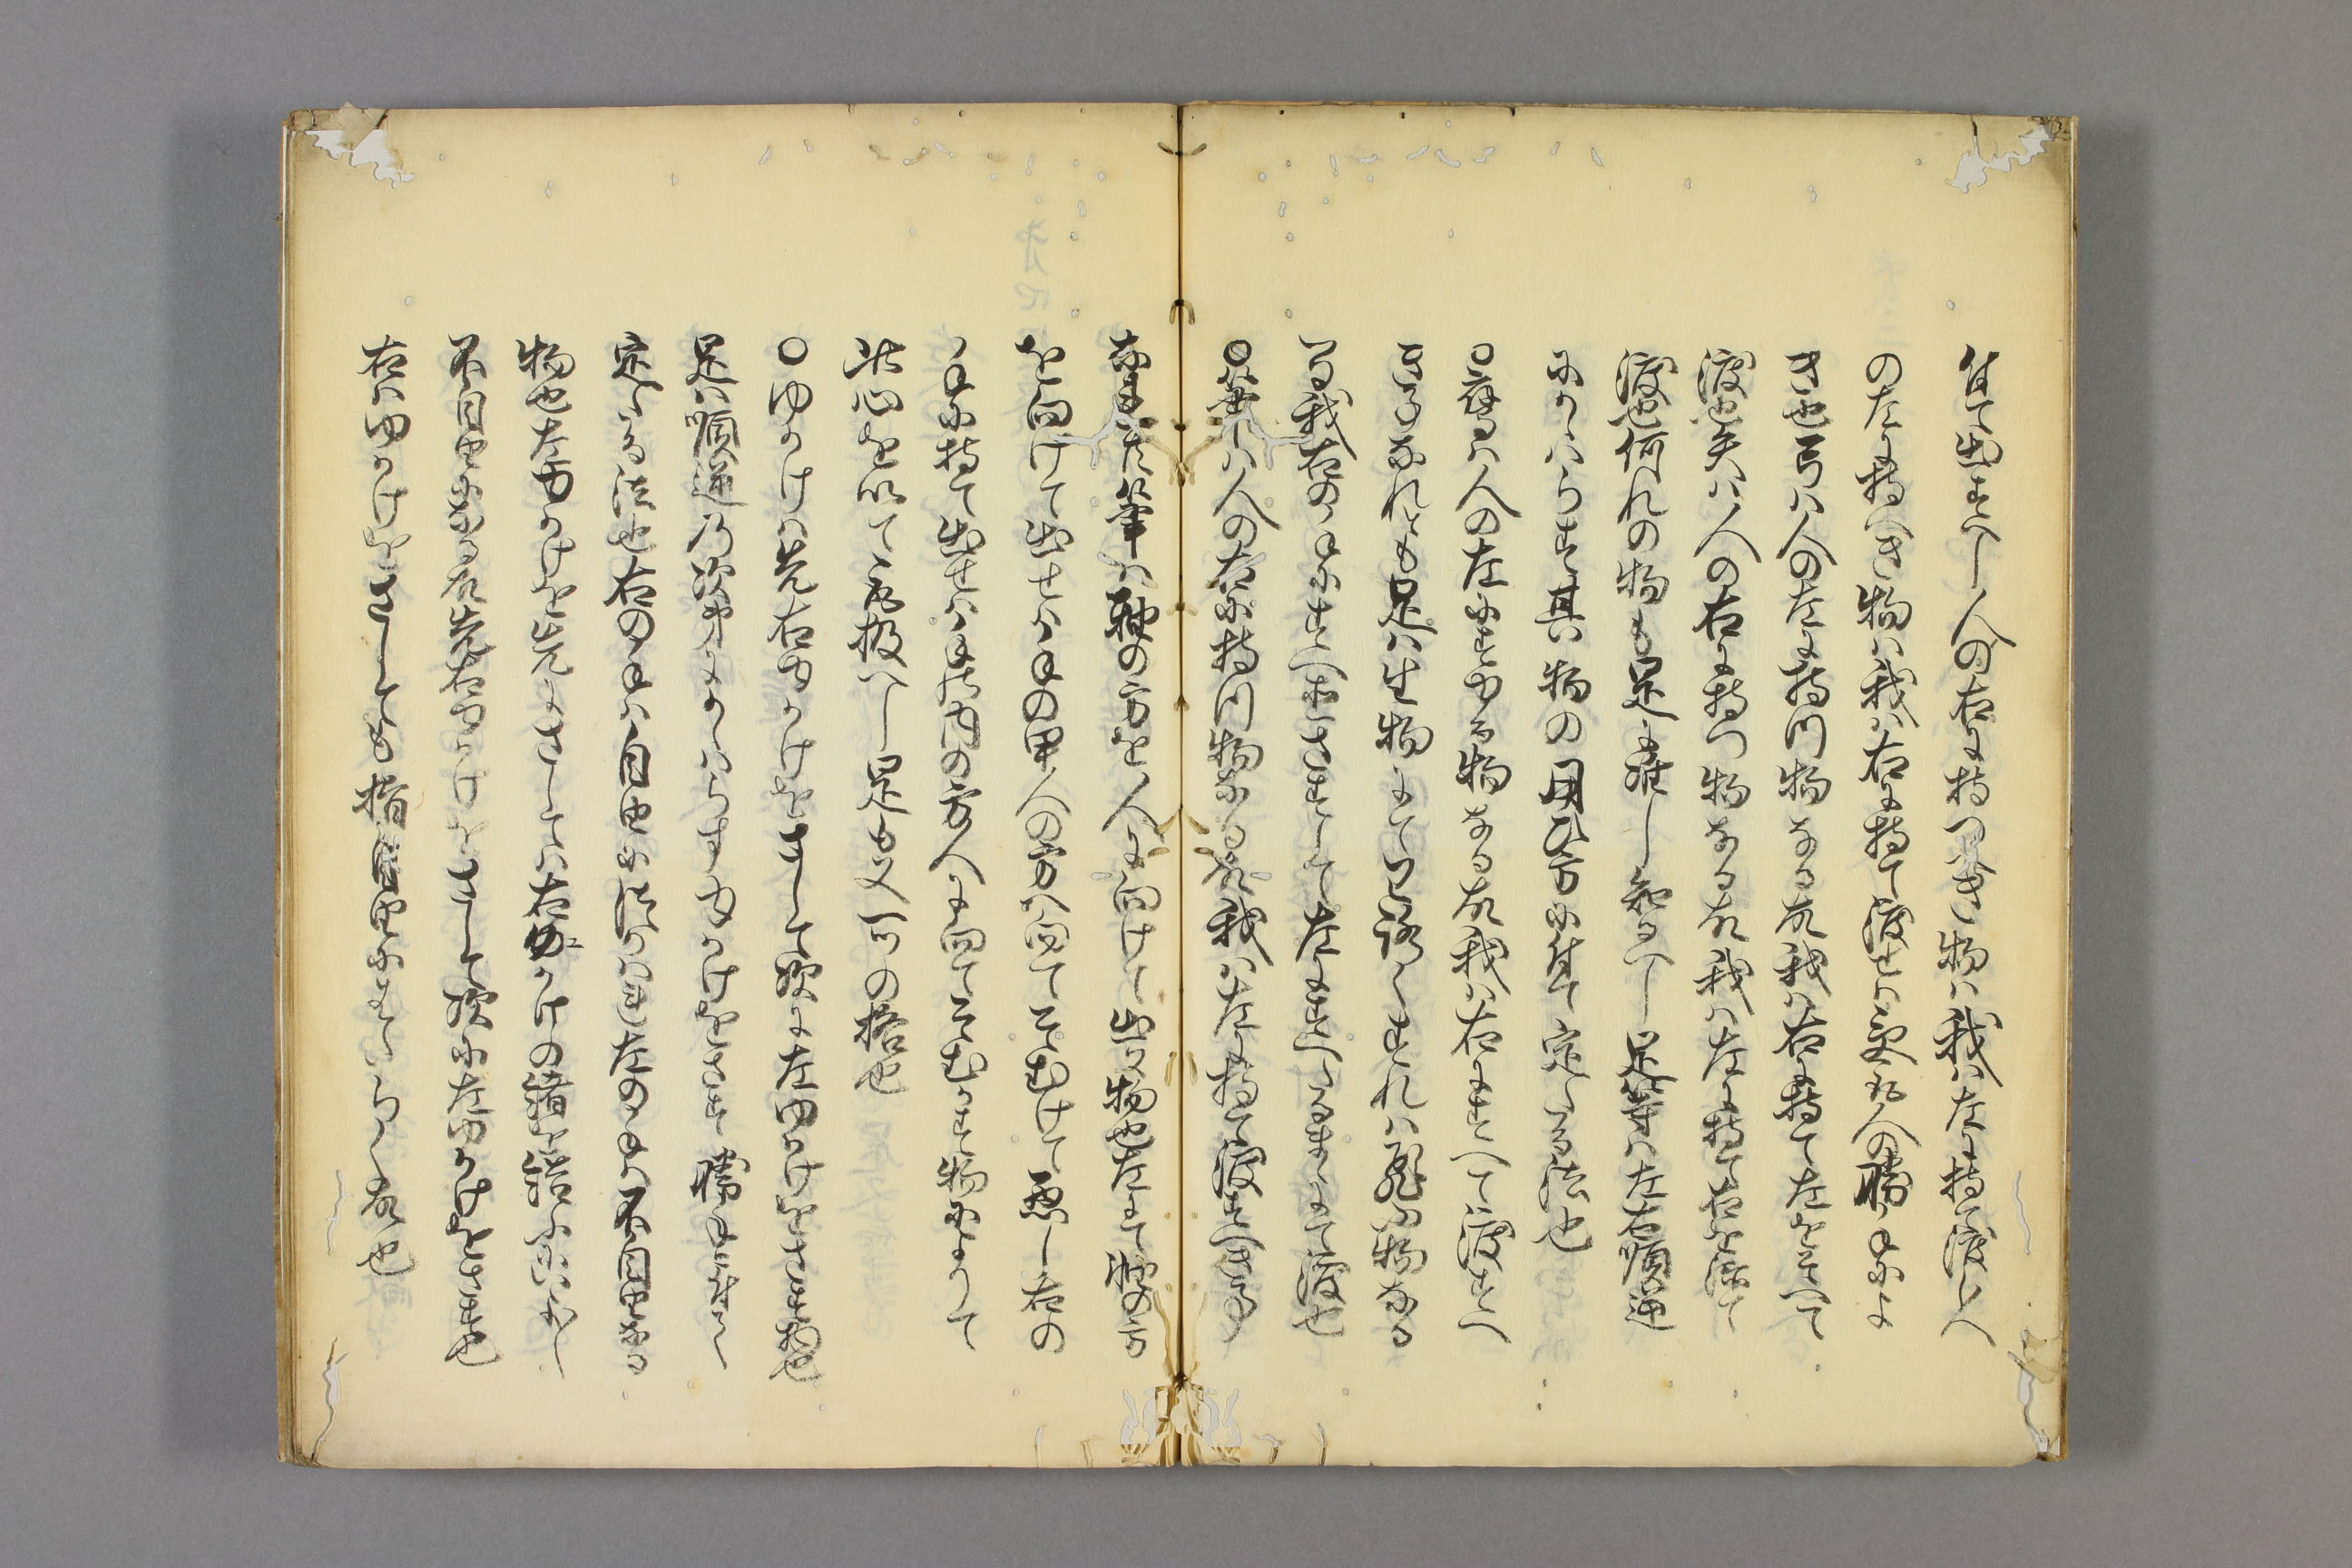 付て出すへし人の右に持つへき物ハ我ハ左に持て渡し人
の左に持へき物ハ我ハ右に持て渡せハ受取人の勝手によ
き也弓ハ人の左に持つ物なる故我ハ右に持て左をそへて
渡也矢ハ人の右に持つ物なる故我ハ左に持て右を添て
渡也何れの物も是に准し知るへし是等ハ左右順逆
にかゝハらす其物の用ひ方に付て定りたる法也
○鷹ハ人の左にすゆる物なる故我ハ右にすへて渡すへ
き事なれとも是ハ生物にて見誤りすれハ飛物なる
間我右の手にすへましきして左にすへたるまゝにて渡也
○筆ハ人の右に持つ物なる故我ハ左に持て渡すへき事
なまた筆ハ軸の方を人に向けて出す物也左にて軸の方
を向けて出せハ手の甲人の方へ向てそむけて悪し右の
手に持て出せハ手の内の方人に向てそむかす物によりて
此心を以てこれを扱へし是も又一つの格也
○ゆかけハ先右ゆかけをさして次に左ゆかけをさす物也
是ハ順逆の次第にかゝハらすゆかけをさす勝手に付て
定りたる法也右の手ハ自由に活かはる左の手ハ不自由なる
物也左ゆかけを先にさしてハ右ゆかけの緒を結ふに
不自由なる故先右ゆかけをさして次に左ゆかけをさす也
右ハゆかけをさしても指自由にはたらく故也